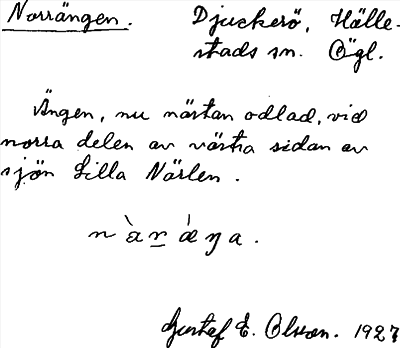 Norrängen. Djuckerö, Hälle-
stads sn. Ögl.
Ängen, nu nästan odlad, vid
norra delen av västra sidan av
sjön Lilla Närlen.
Gustaf E. Olsson. 1927